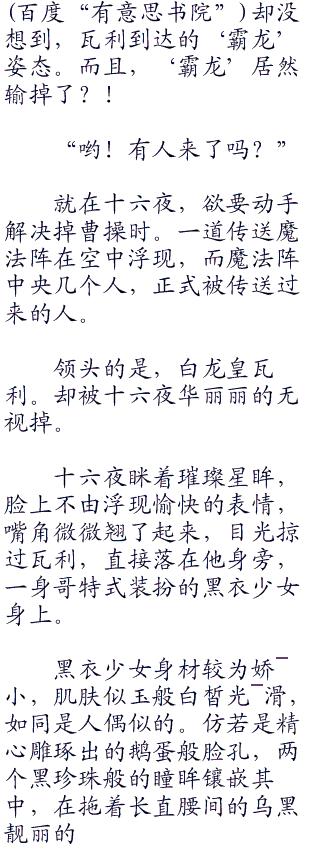 (百度“有意思书院”)却没
想到，瓦利到达的‘霸龙’
姿态。而且，‘霸龙’居然
输掉了？！
“哟！有人来了吗？”
就在十六夜，欲要动手
解决掉曹操时。一道传送魔
法阵在空中浮现，而魔法阵
中央几个人，正式被传送过
来的人。
领头的是，白龙皇瓦
利。却被十六夜华丽丽的无
视掉。
十六夜眯着璀璨星眸，
脸上不由浮现愉快的表情，
嘴角微微翘了起来，目光掠
过瓦利，直接落在他身旁，
一身哥特式装扮的黑衣少女
身上。
黑衣少女身材较为娇¯
小，肌肤似玉般白皙光¯滑，
如同是人偶似的。仿若是精
心雕琢出的鹅蛋般脸孔，两
个黑珍珠般的瞳眸镶嵌其
中，在拖着长直腰间的乌黑
靓丽的